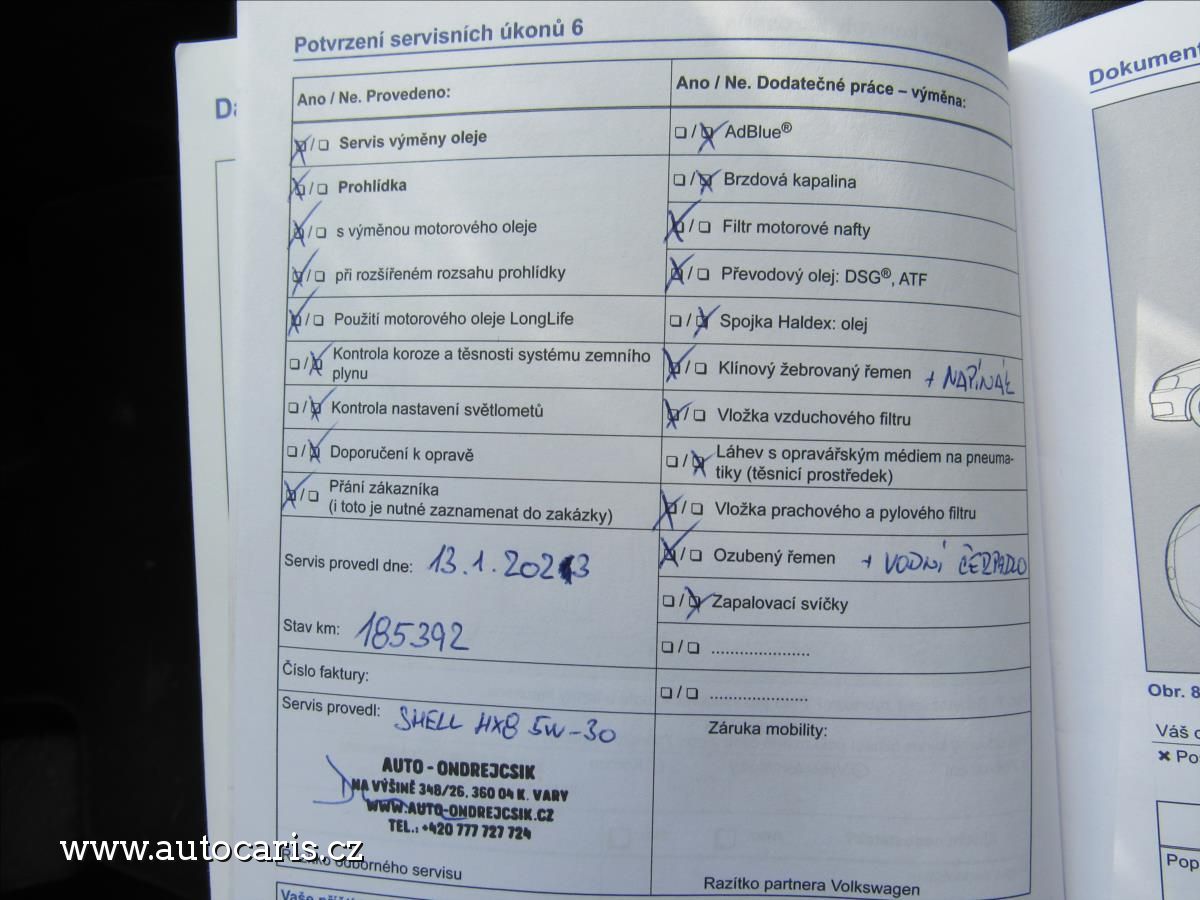 Potvrzení servisních úkonů 6
Dokument
Ano / Ne. Provedeno:
Servis výměny oleje
Prohlídka
s výměnou motorového oleje
při rozšířeném rozsahu prohlídky
Použití motorového oleje LongLife
Kontrola koroze a těsnosti systému zemního
plynu
Kontrola nastavení světlometů
Doporučení k opravě
Přání zákazníka
(i toto je nutné zaznamenat do zakázky)
Servis provedl dne: 13.1.2023
Stav km: 185392
Číslo faktury:
Servis provedl: SHELL HX8 5W-30
AUTO - ONDREJCSIK
NA VÝŠINĚ 348/26, 360 04 K. VARY
WWW.AUTO-ONDREJCSIK.CZ
TEL.: +420 777 727 724
odborného servisu
Ano / Ne. Dodatečné práce – výměna:
AdBlue®
Brzdová kapalina
Filtr motorové nafty
Převodový olej: DSG®, ATF
Spojka Haldex: olej
Klínový žebrovaný řemen + NAPÍNÁK
Vložka vzduchového filtru
Láhev s opravářským médiem na pneuma-
tiky (těsnicí prostředek)
Vložka prachového a pylového filtru
Ozubený řemen + VODNÍ ČERPADLO
Zapalovací svíčky
Záruka mobility:
Razítko partnera Volkswagen
Obr. 8
Váš
Pop
www.autocaris.cz